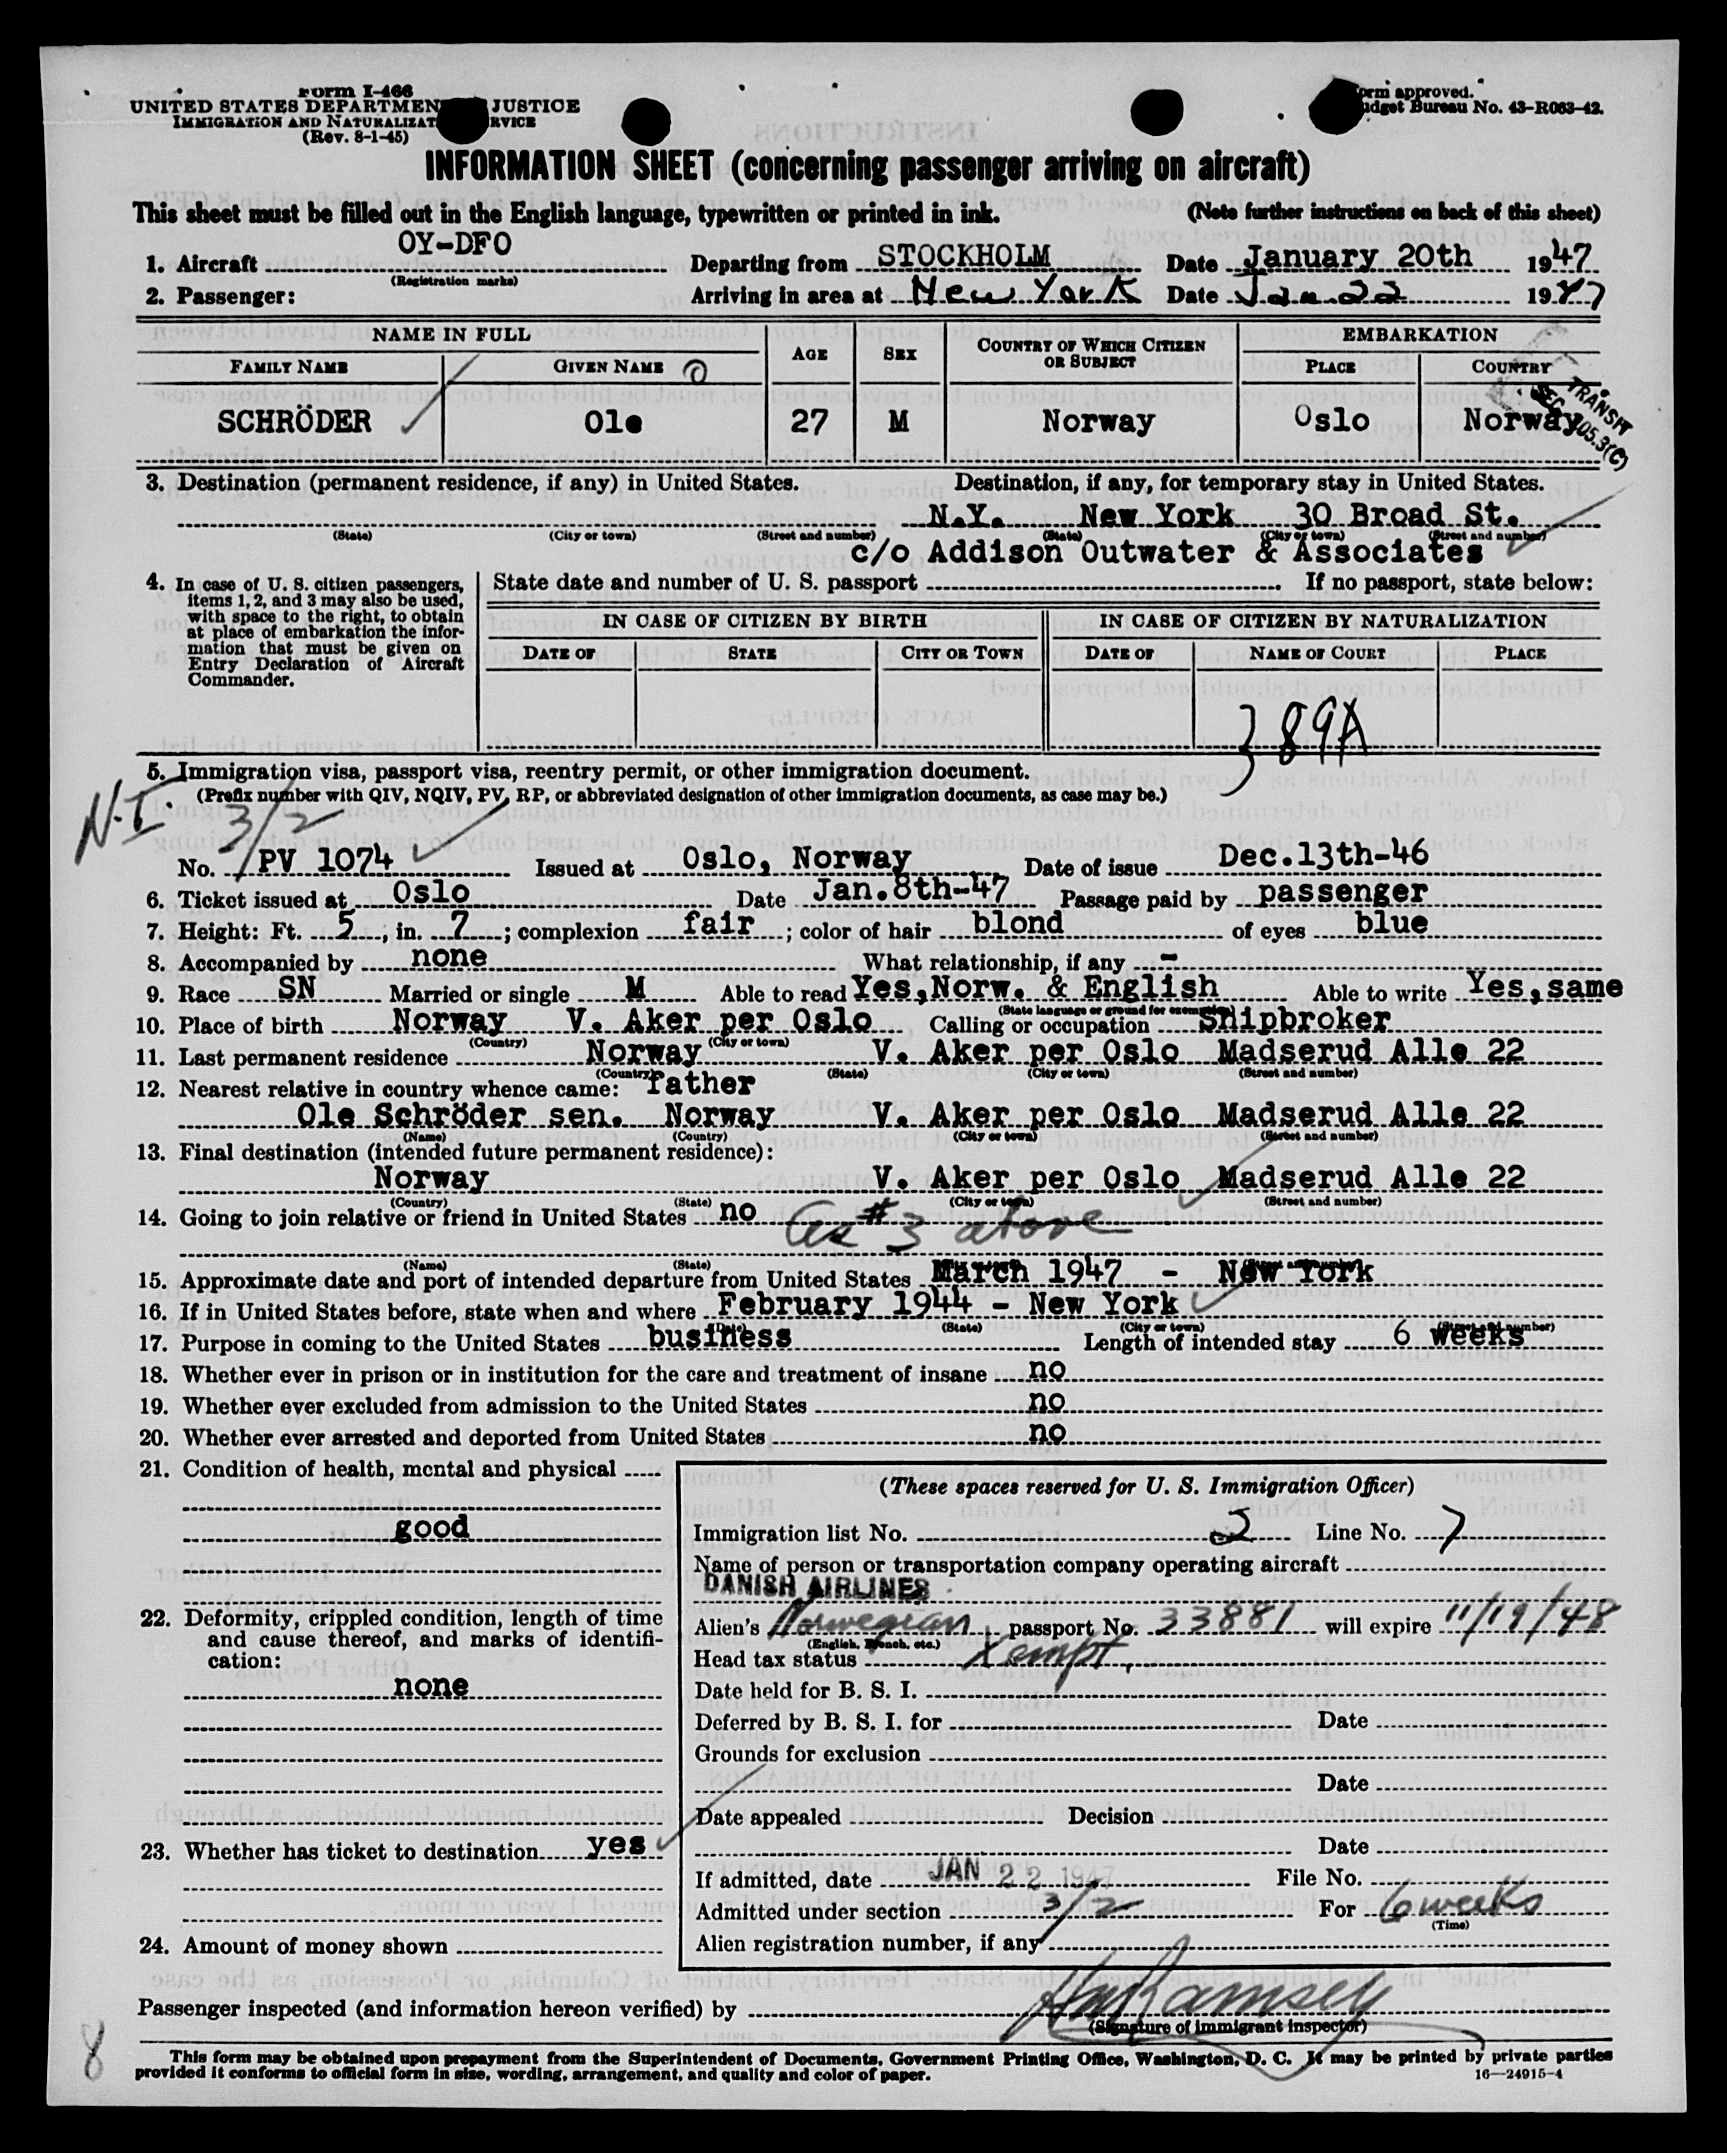 Form I-466
UNITED STATES DEPARTMEN JUSTICE
IMMIGRATION AND NATURALIZAT RVICE
(Rev. 8-1-45)
orm approved.
udget Bureau No. 43-R063-42.
INFORMATION SHEET (concerning passenger arriving on aircraft)
This sheet must be filled out in the English language, typewritten or printed in ink. (Note further instructions on back of this sheet)
1. Aircraft OY-DFO (Registration marks) Departing from STOCKHOLM Date January 20th 1947
2. Passenger: Arriving in area at New York Date Jan 22 1947
NAME IN FULL AGE SEX COUNTRY OF WHICH CITIZEN OR SUBJECT EMBARKATION
FAMILY NAME GIVEN NAME PLACE COUNTRY
SCHRÖDER Ole 27 M Norway Oslo Norway
TRANSIT
SEC 105.3(C)
3. Destination (permanent residence, if any) in United States. Destination, if any, for temporary stay in United States.
N.Y. New York 30 Broad St.
(State) (City or town) (Street and number) (State) (City or town) (Street and number)
c/o Addison Outwater & Associates
4. In case of U. S. citizen passengers, items 1, 2, and 3 may also be used, with space to the right, to obtain at place of embarkation the information that must be given on Entry Declaration of Aircraft Commander.
State date and number of U. S. passport If no passport, state below:
IN CASE OF CITIZEN BY BIRTH IN CASE OF CITIZEN BY NATURALIZATION
DATE OF STATE CITY OR TOWN DATE OF NAME OF COURT PLACE
389A
5. Immigration visa, passport visa, reentry permit, or other immigration document.
(Prefix number with QIV, NQIV, PV, RP, or abbreviated designation of other immigration documents, as case may be.)
N.I. 3/2
No. PV 1074 Issued at Oslo, Norway Date of issue Dec.13th-46
6. Ticket issued at Oslo Date Jan.8th-47 Passage paid by passenger
7. Height: Ft. 5, in. 7; complexion fair; color of hair blond of eyes blue
8. Accompanied by none What relationship, if any -
9. Race SN Married or single M Able to read Yes,Norw. & English Able to write Yes,same
(State language or ground for exemption)
10. Place of birth Norway V. Aker per Oslo Calling or occupation Shipbroker
(Country) (City or town)
11. Last permanent residence Norway V. Aker per Oslo Madserud Alle 22
(Country) (State) (City or town) (Street and number)
12. Nearest relative in country whence came: father
Ole Schröder sen. Norway V. Aker per Oslo Madserud Alle 22
(Name) (Country) (City or town) (Street and number)
13. Final destination (intended future permanent residence):
Norway V. Aker per Oslo Madserud Alle 22
(Country) (State) (City or town) (Street and number)
14. Going to join relative or friend in United States no As #3 above
(Name) (State)
15. Approximate date and port of intended departure from United States March 1947 - New York
16. If in United States before, state when and where February 1944 - New York
(Date) (State) (City or town) (Street and number)
17. Purpose in coming to the United States business Length of intended stay 6 weeks
18. Whether ever in prison or in institution for the care and treatment of insane no
19. Whether ever excluded from admission to the United States no
20. Whether ever arrested and deported from United States no
21. Condition of health, mental and physical
good
22. Deformity, crippled condition, length of time and cause thereof, and marks of identification:
none
23. Whether has ticket to destination yes
24. Amount of money shown
(These spaces reserved for U. S. Immigration Officer)
Immigration list No. 2 Line No. 7
Name of person or transportation company operating aircraft
DANISH AIRLINES
Alien's Norwegian passport No. 33881 will expire 11/19/48
(English, French, etc.)
Head tax status Xempt
Date held for B. S. I.
Deferred by B. S. I. for Date
Grounds for exclusion
Date
Date appealed Decision
Date
If admitted, date JAN 22 1947 File No.
Admitted under section 3/2 For 6 weeks
(Time)
Alien registration number, if any
Passenger inspected (and information hereon verified) by Ramsey
(Signature of immigrant inspector)
8
This form may be obtained upon prepayment from the Superintendent of Documents, Government Printing Office, Washington, D. C. It may be printed by private parties
provided it conforms to official form in size, wording, arrangement, and quality and color of paper. 16—24915-4